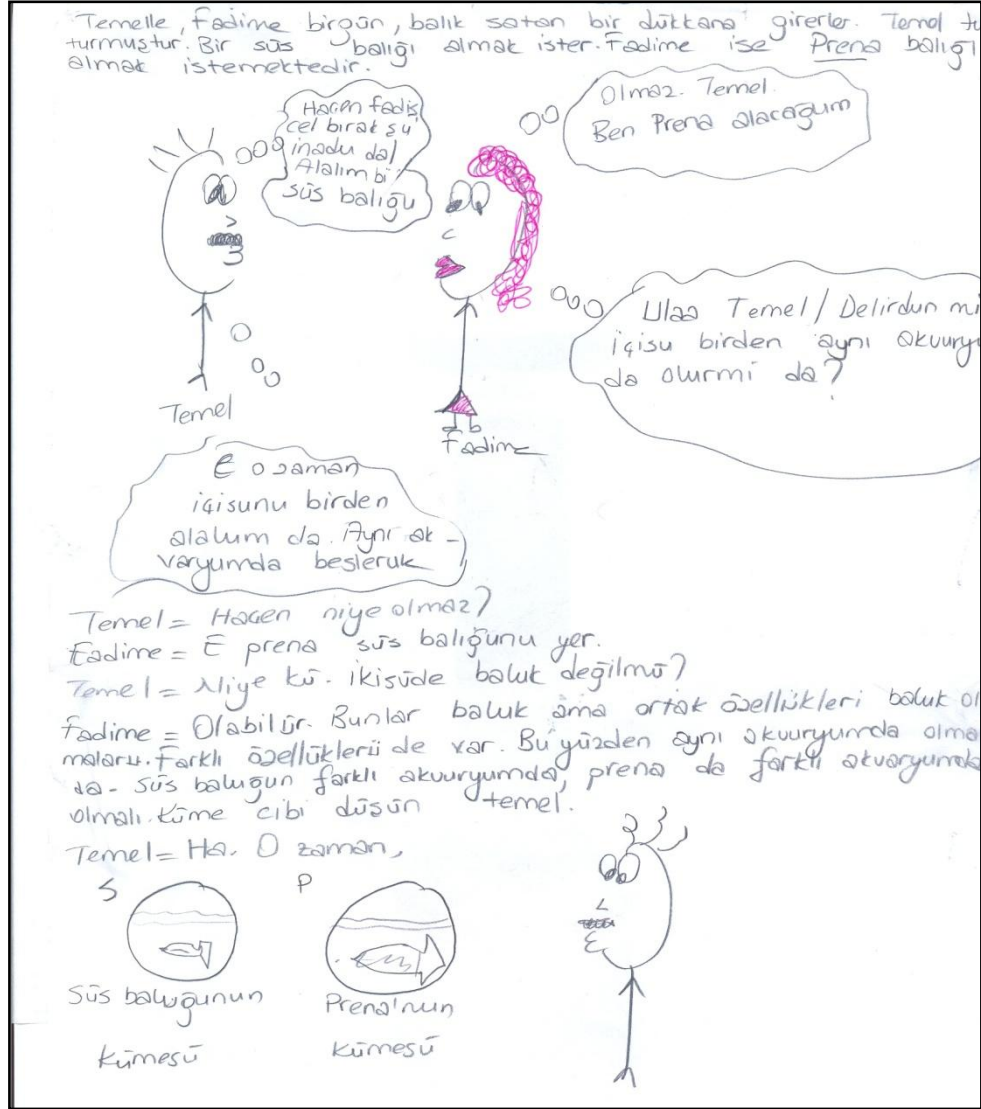 Temelle, Fadime birgün, balık satan bir dükkana girerler. Temel tu
turmuştur. Bir süs balığı almak ister. Fadime ise Prena balığı
almak istemektedir.
Haçen fadiş
cel bırak şu
inadu da/
Alalım bi
süs balığu
Olmaz. Temel.
Ben Prena alacağum
Ulaa Temel/ Delirdun mi
içisu birden aynı akuury
da olurmi da?
Temel
Fadime
E o zaman
içisunu birden
alalum da. Aynı ak-
varyumda besleruk
Temel = Haçen niye olmaz?
Fadime = E prena süs balığunu yer.
Temel = Niye kü. ikisüde baluk değilmü?
Fadime = Olabilür. Bunlar baluk ama ortak özellükleri baluk ol
maları. Farklı özellüklerü de var. Bu yüzden aynı akuuryumda olma
da- Süs baluğun farklı akuuryumda, prena da farklı akvaryumda
olmalı. Küme cibi düşün temel.
Temel = Ha. O zaman,
S
P
Süs baluğunun
Kümesü
Prena'nun
Kümesü